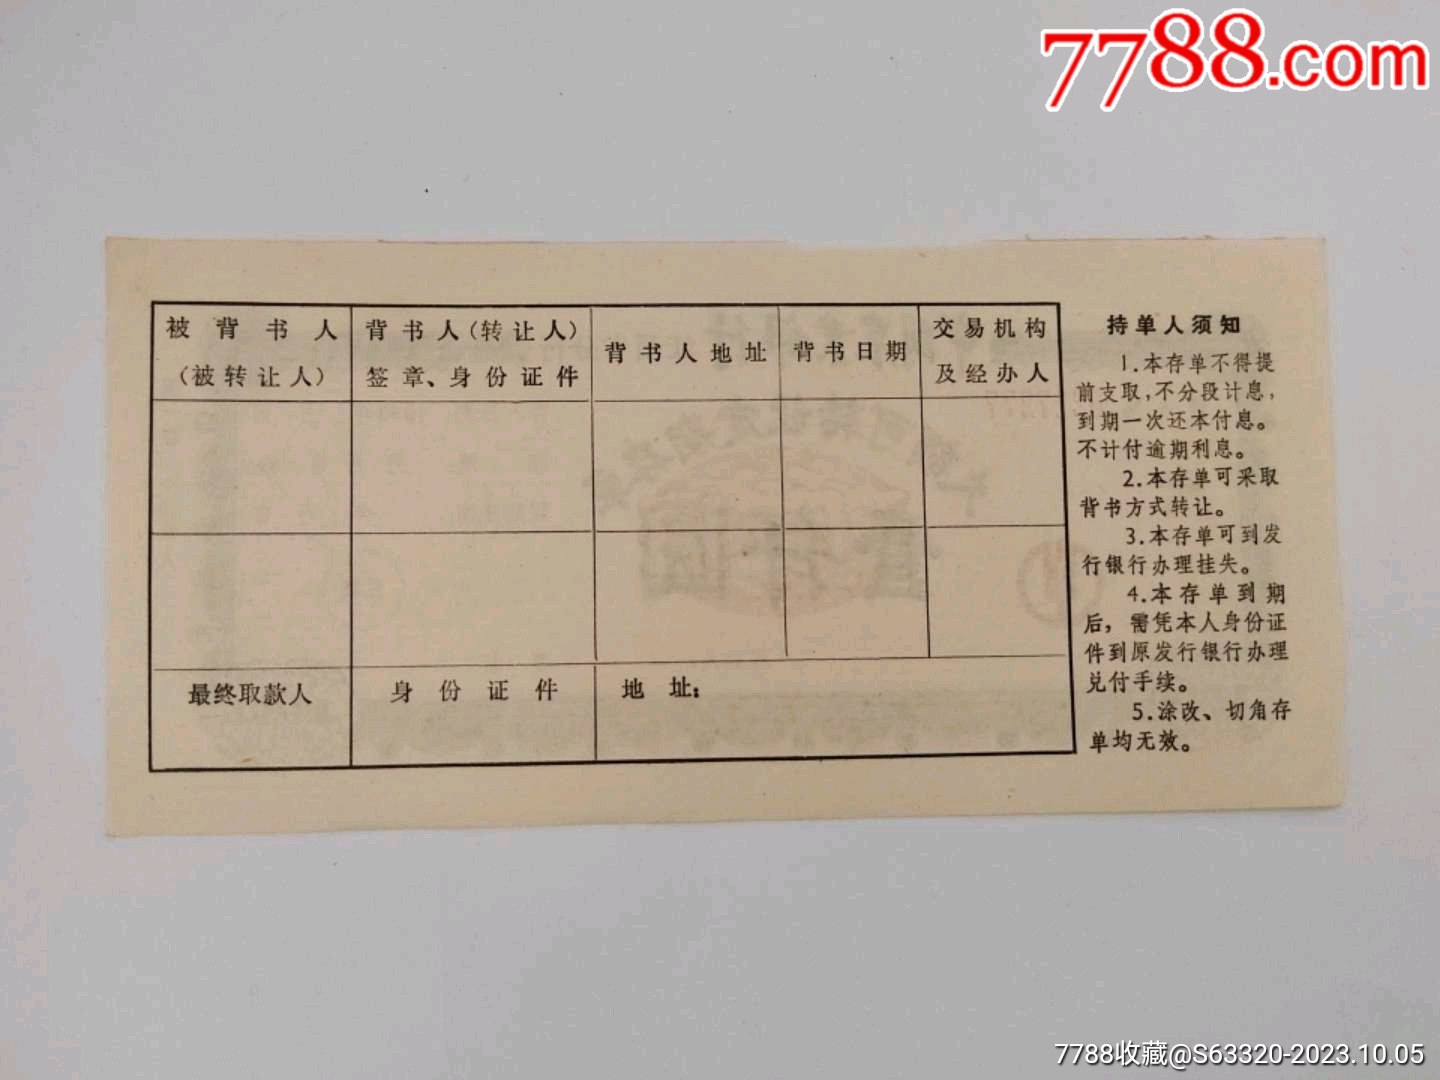 7788.com
被背书人
(被转让人)
背书人(转让人)
签章、身份证件
背书人地址
背书日期
交易机构
及经办人
最终取款人
身份证件
地址：
持单人须知
1.本存单不得提
前支取，不分段计息，
到期一次还本付息。
不计付逾期利息。
2.本存单可采取
背书方式转让。
3.本存单可到发
行银行办理挂失。
4.本存单到期
后，需凭本人身份证
件到原发行银行办理
兑付手续。
5.涂改、切角存
单均无效。
7788收藏@S63320-2023.10.05